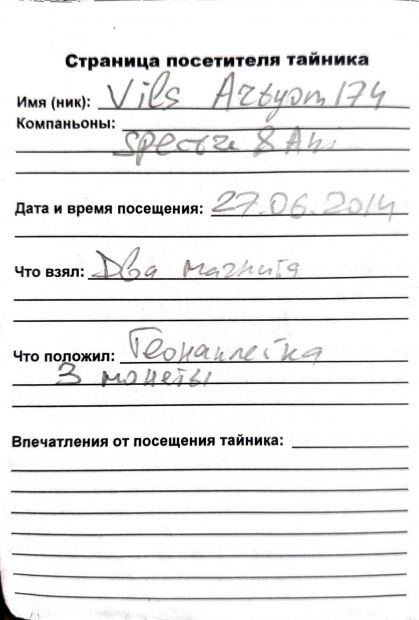 Страница посетителя тайника
Имя (ник): Vils Artyom 174
Компаньоны:
Spectre & Ani
Дата и время посещения: 27.06.2014
Что взял: Два магнита
Что положил: Геонаклейка
3 монеты
Впечатления от посещения тайника: